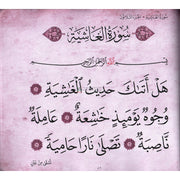 سُورَةُ الْغَاشِيَةِ
بِسْمِ اللَّهِ الرَّحْمَٰنِ الرَّحِيمِ
هَلْ أَتَىٰكَ حَدِيثُ الْغَٰشِيَةِ
وُجُوهٌ يَوْمَئِذٍ خَٰشِعَةٌ عَامِلَةٌ
نَّاصِبَةٌ تَصْلَىٰ نَارًا حَامِيَةً
تُسْقَىٰ مِنْ عَيْنٍ